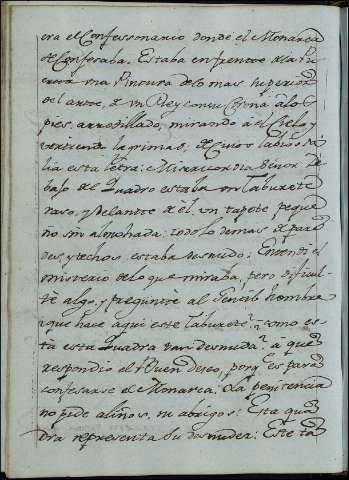 era el Confessonario donde el Monarca
se Confesaba. Estaba enfrente de la Pu
erta una Pintura de lo mas superior
del arte, de un Rey con su Corona a los
pies, arrodillado, mirando a el Cielo, y
vertiendo lagrimas, de cuios labios sa
lia esta letra: Misericordia Señor. De
bajo del Quadro estaba un taburete
raso, y delante de el, un tapete peque
ño sin almohada: todo lo demas de pare
des, y techos, estaba desnudo: Entendi el
misterio de lo que miraba, pero dificul
te algo, y pregunte al Gentil hombre
que hace aqui este taburete? como es
ta esta Quadra tan desnuda? a que
respondio el Buen deseo, porq es para
confesarse el Monarca. La penitencia
no pide aliños, ni abrigos: Esta qua
dra representa su desnudez: Este ta